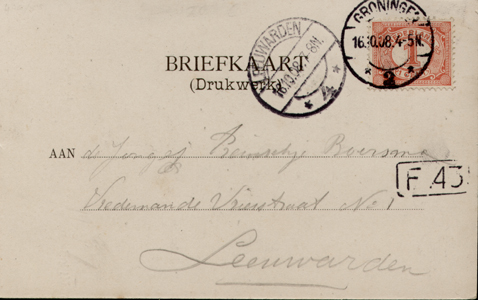 GRONINGEN
16.10.08.4-5N.
2
LEEUWARDEN
16.10.08.7-8N.
4
1
BRIEFKAART
(Drukwerk)
AAN de Jongej Boersma
Straat No 1
F.43
Leeuwarden